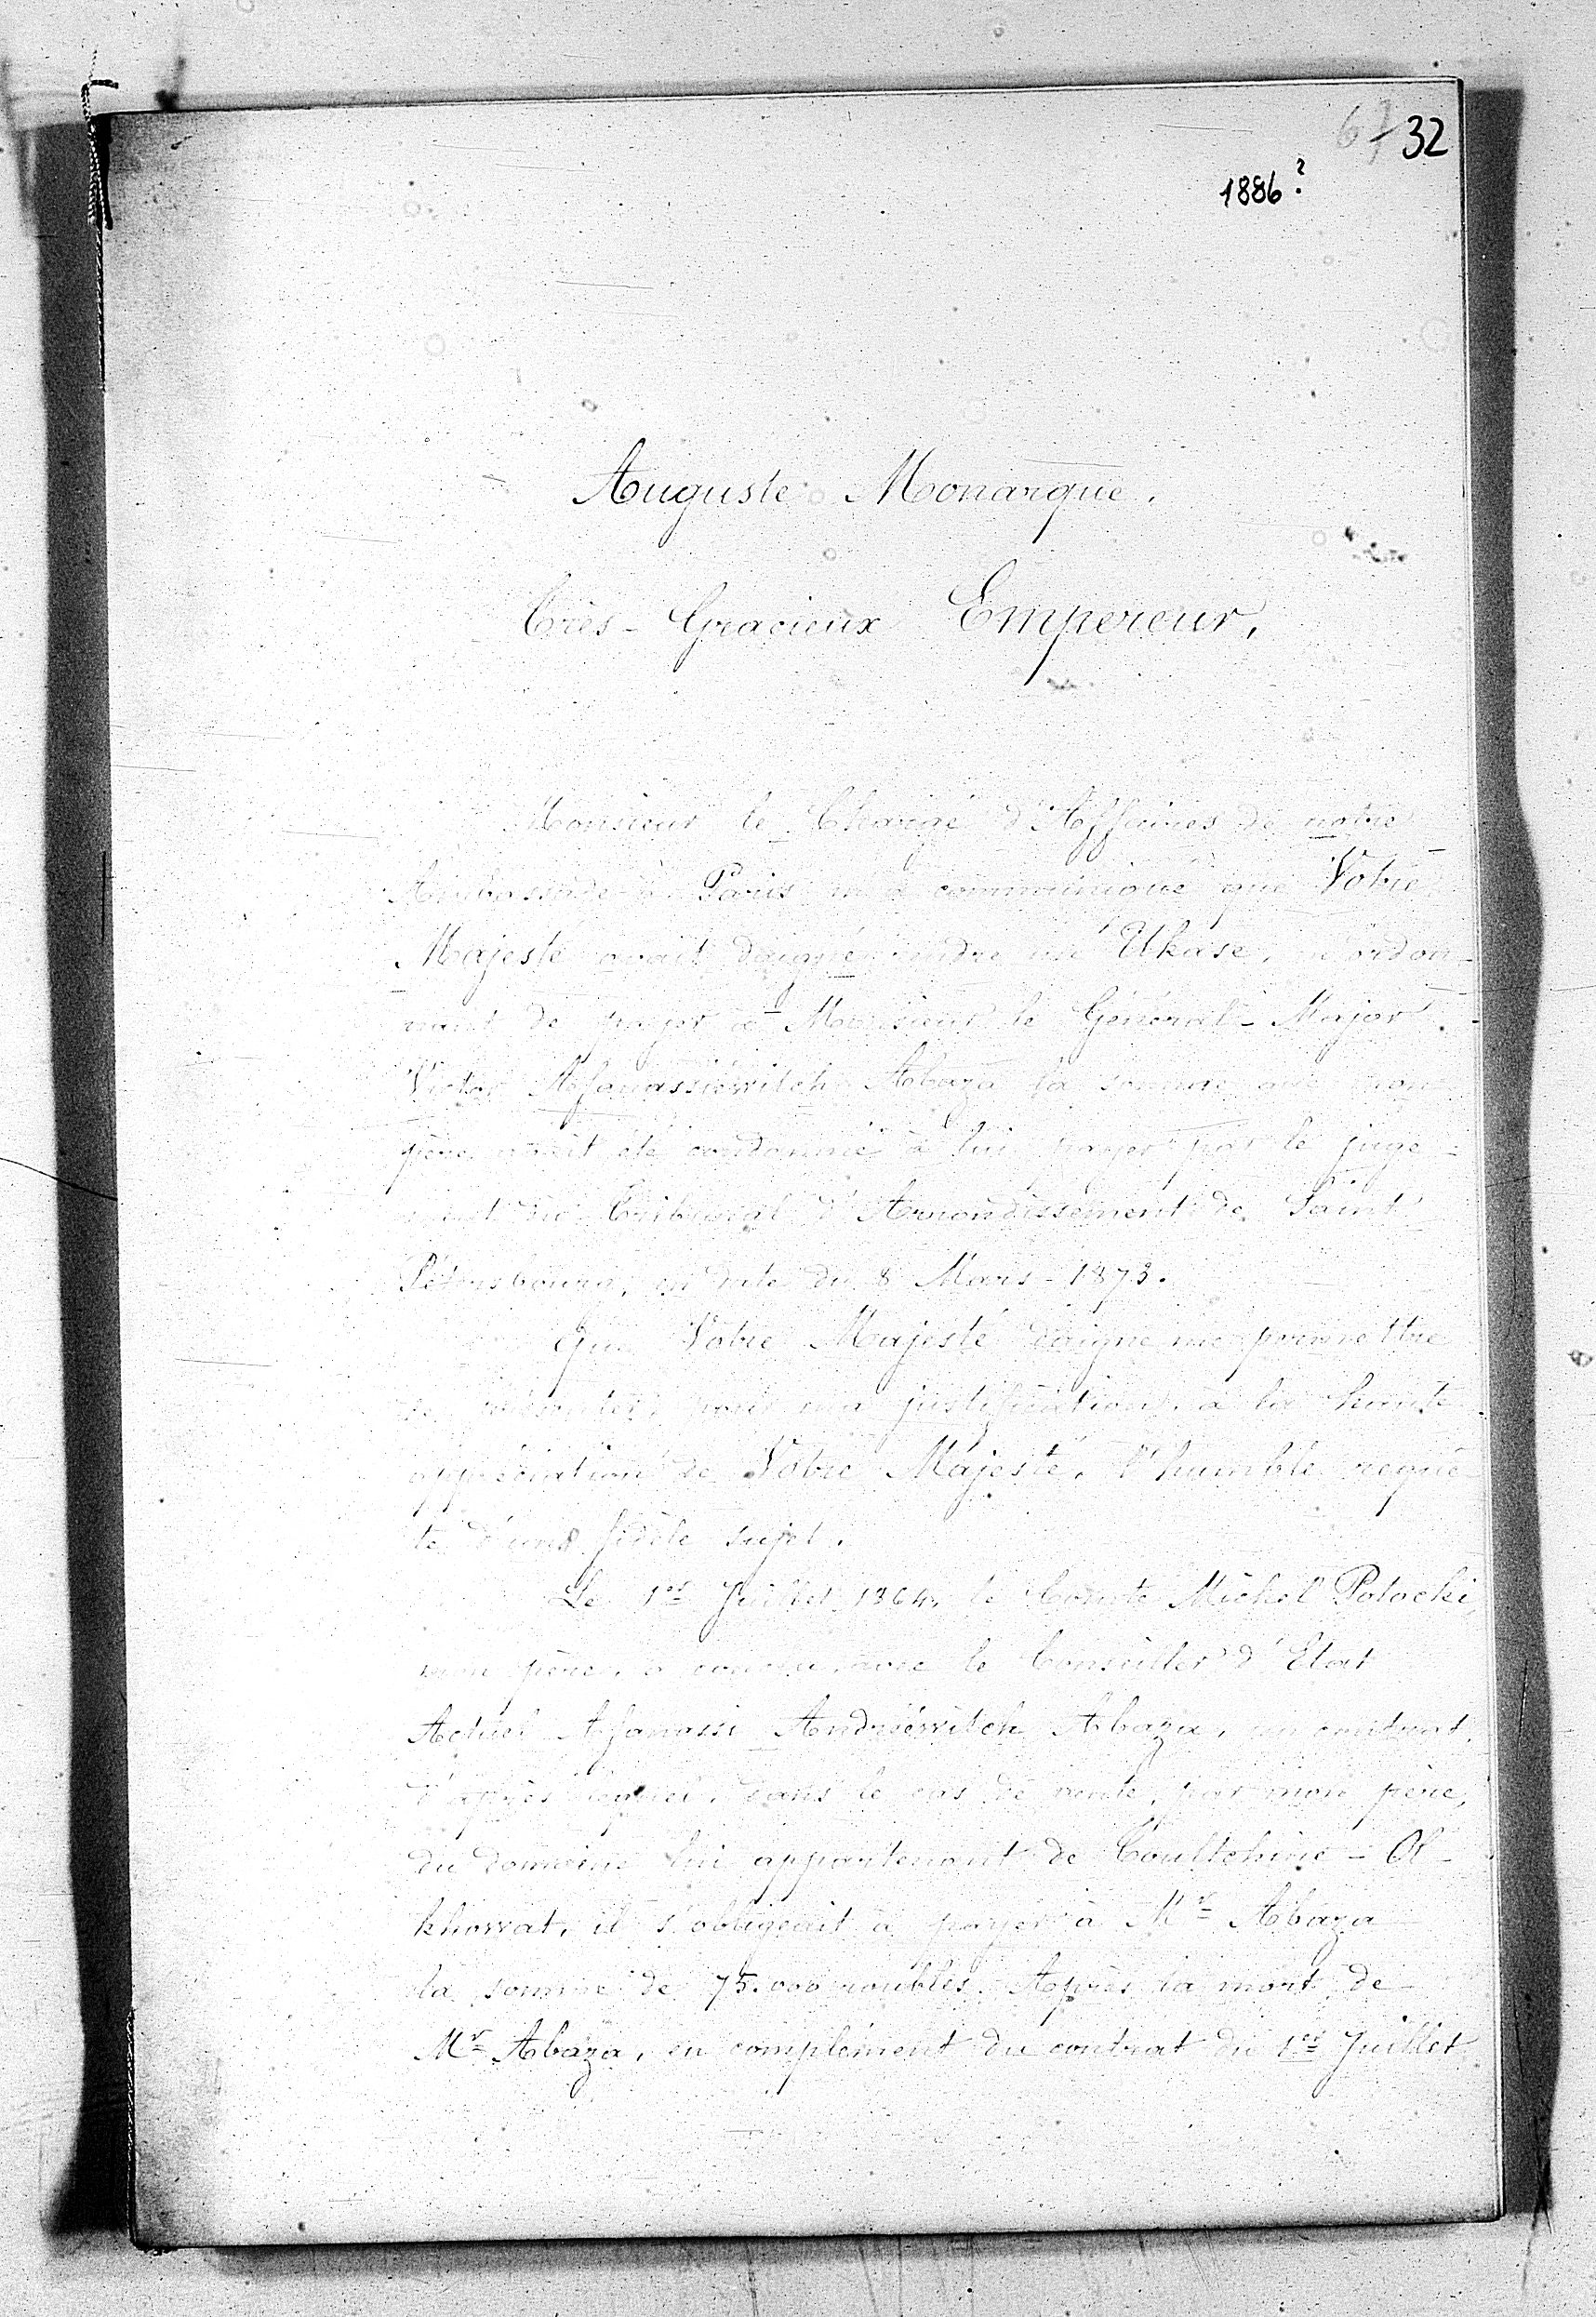 67 32
1886?
Auguste Monarque.
Très-Gracieux Empereur,
Monsieur le Chargé d'Affaires de notre
Ambassade à Paris m'a communiqué que Votre
Majesté avait daigné rendre une Ukase, ordon-
nant de payer à Monsieur le Général-Major
Victor Afanassiéwitch Abaza la somme que mon
père avait été condamné à lui payer par le juge-
ment du Tribunal d'Arrondissement de Saint
Pétersbourg, en date du 8 Mars 1873.
Que Votre Majesté daigne me permettre
de présenter, pour ma justification, à la haute
appréciation de Votre Majesté, l'humble requê-
te d'un fidèle sujet.
Le 1er Juillet 1864, le Comte Michel Potocki,
mon père, a conclu, avec le Conseiller d'Etat
Actuel Afanassi Andréewitch Abaza, un contrat,
d'après lequel, dans le cas de vente, par mon père,
du domaine lui appartenant de Coultchine-Ol-
khowat, il s'obligeait à payer à Mr Abaza
la somme de 75.000 roubles. Après la mort de
Mr Abaza, en complément du contrat du 1er Juillet